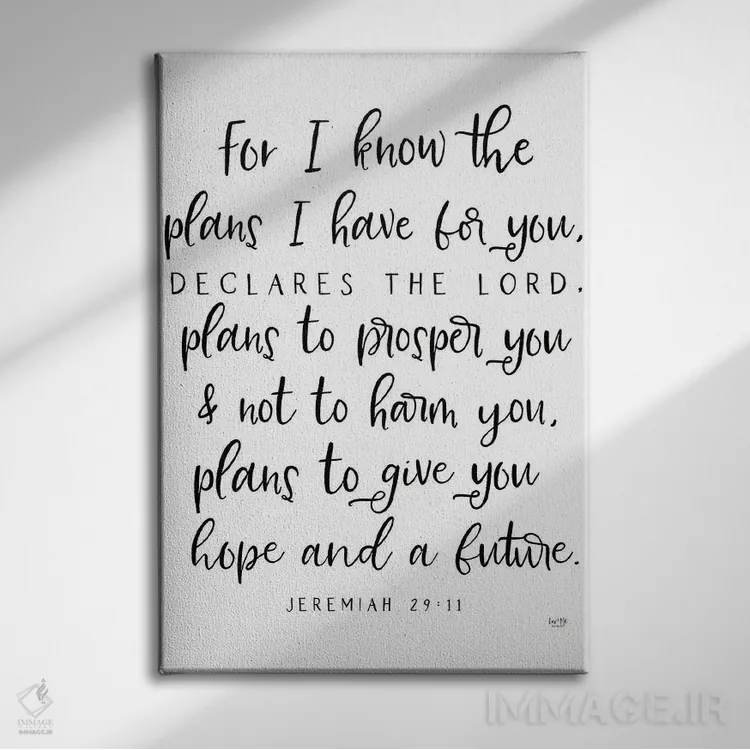 For I know the
plans I have for you,
DECLARES THE LORD,
plans to prosper you
& not to harm you,
plans to give you
hope and a future.
JEREMIAH 29:11
IMMAGE
IMMAGE.IR
IMMAGE.IR